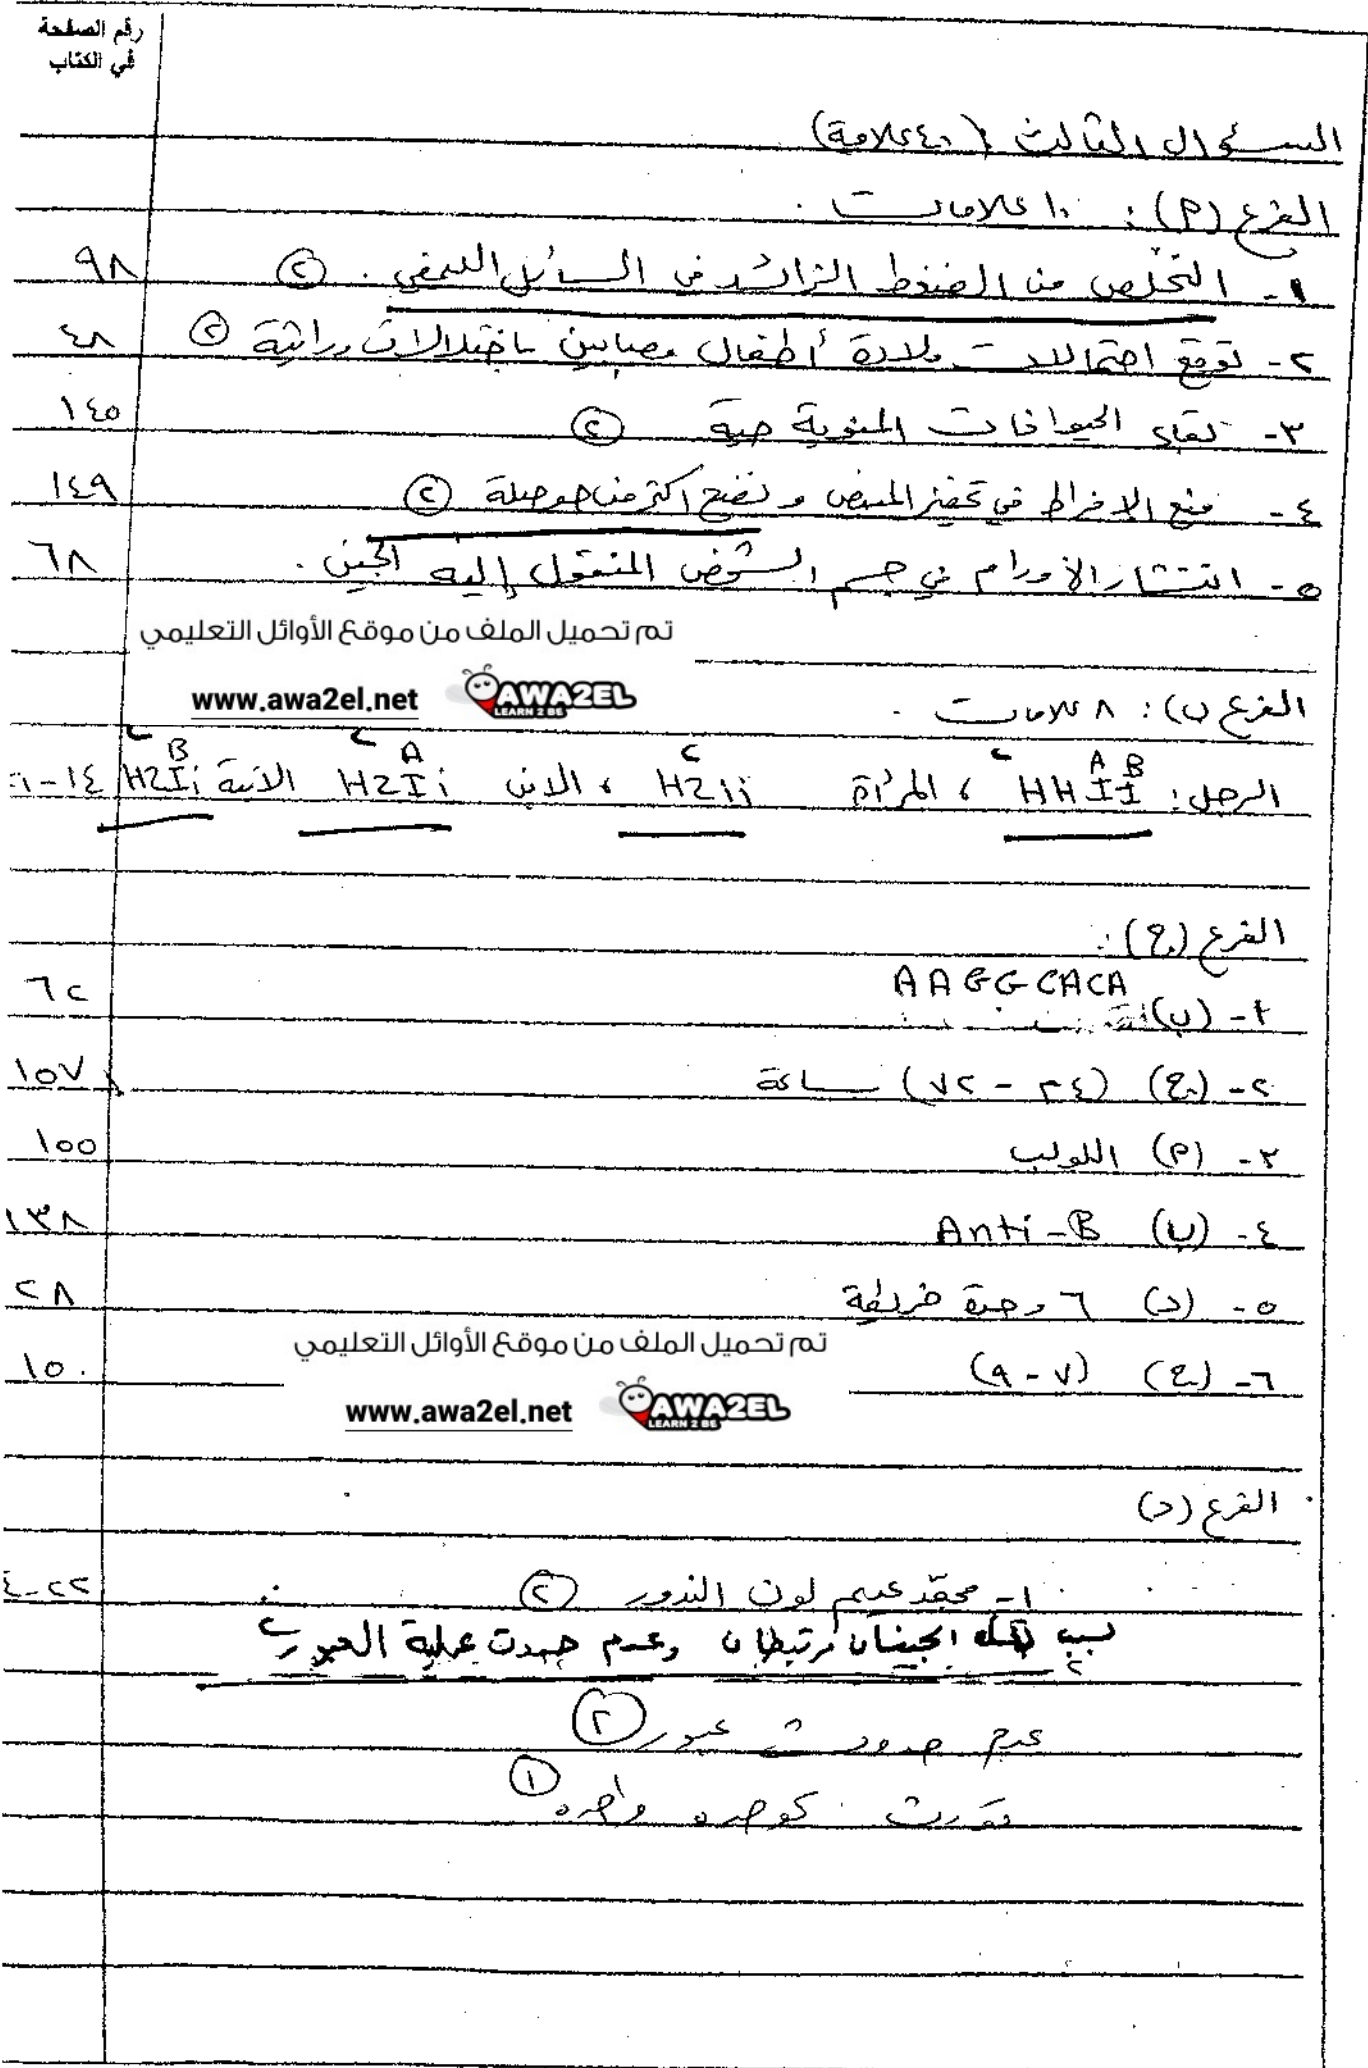 رقم الصفحة
في الكتاب
السؤال الثالث : (٤٠ علامة)
الفرع (أ) : ١٠ علامات .
١- التخلص من الضغط الزائد في السائل الليمفي . ② ٩٨
٢- توقع احتمالات ولادة أطفال مصابين باختلالات وراثية ② ٤٨
٣- لقاء الحيوانات المنوية حية ② ١٤٥
٤- منع الإفراط في تحفيز المبيض و نضج اكثر من حوصلة ② ١٤٩
٥- انتشار الأورام في جسم الشخص المنقول إليه الجين . ٦٨
تم تحميل الملف من موقع الأوائل التعليمي
www.awa2el.net AWA2EL
LEARN 2 BE
الفرع (ب) : ٨ علامات .
الرجل : HHIᴬIᴮ ، المرأة HZii ، الابن HZIᴬi الابنة HZIᴮi ١٤-
الفرع (ج) :
١- (ب) AAGGCACA ٦٢
٢- (ج) (٢٤ - ٧٢) ساعة ١٥٧
٣- (أ) اللولب ١٥٥
٤- (ب) Anti-B ١٣٨
٥- (د) ٦ وحدة خريطة ٢٨
تم تحميل الملف من موقع الأوائل التعليمي
٦- (ج) (٧ - ٩) ١٥٠
www.awa2el.net AWA2EL
LEARN 2 BE
الفرع (د)
١- لون البذور ② ٢٢-٤
بسبب الجينان مرتبطان وعدم حدوث عملية العبور
عدم حدوث عبور ②
كوحده واحده ①